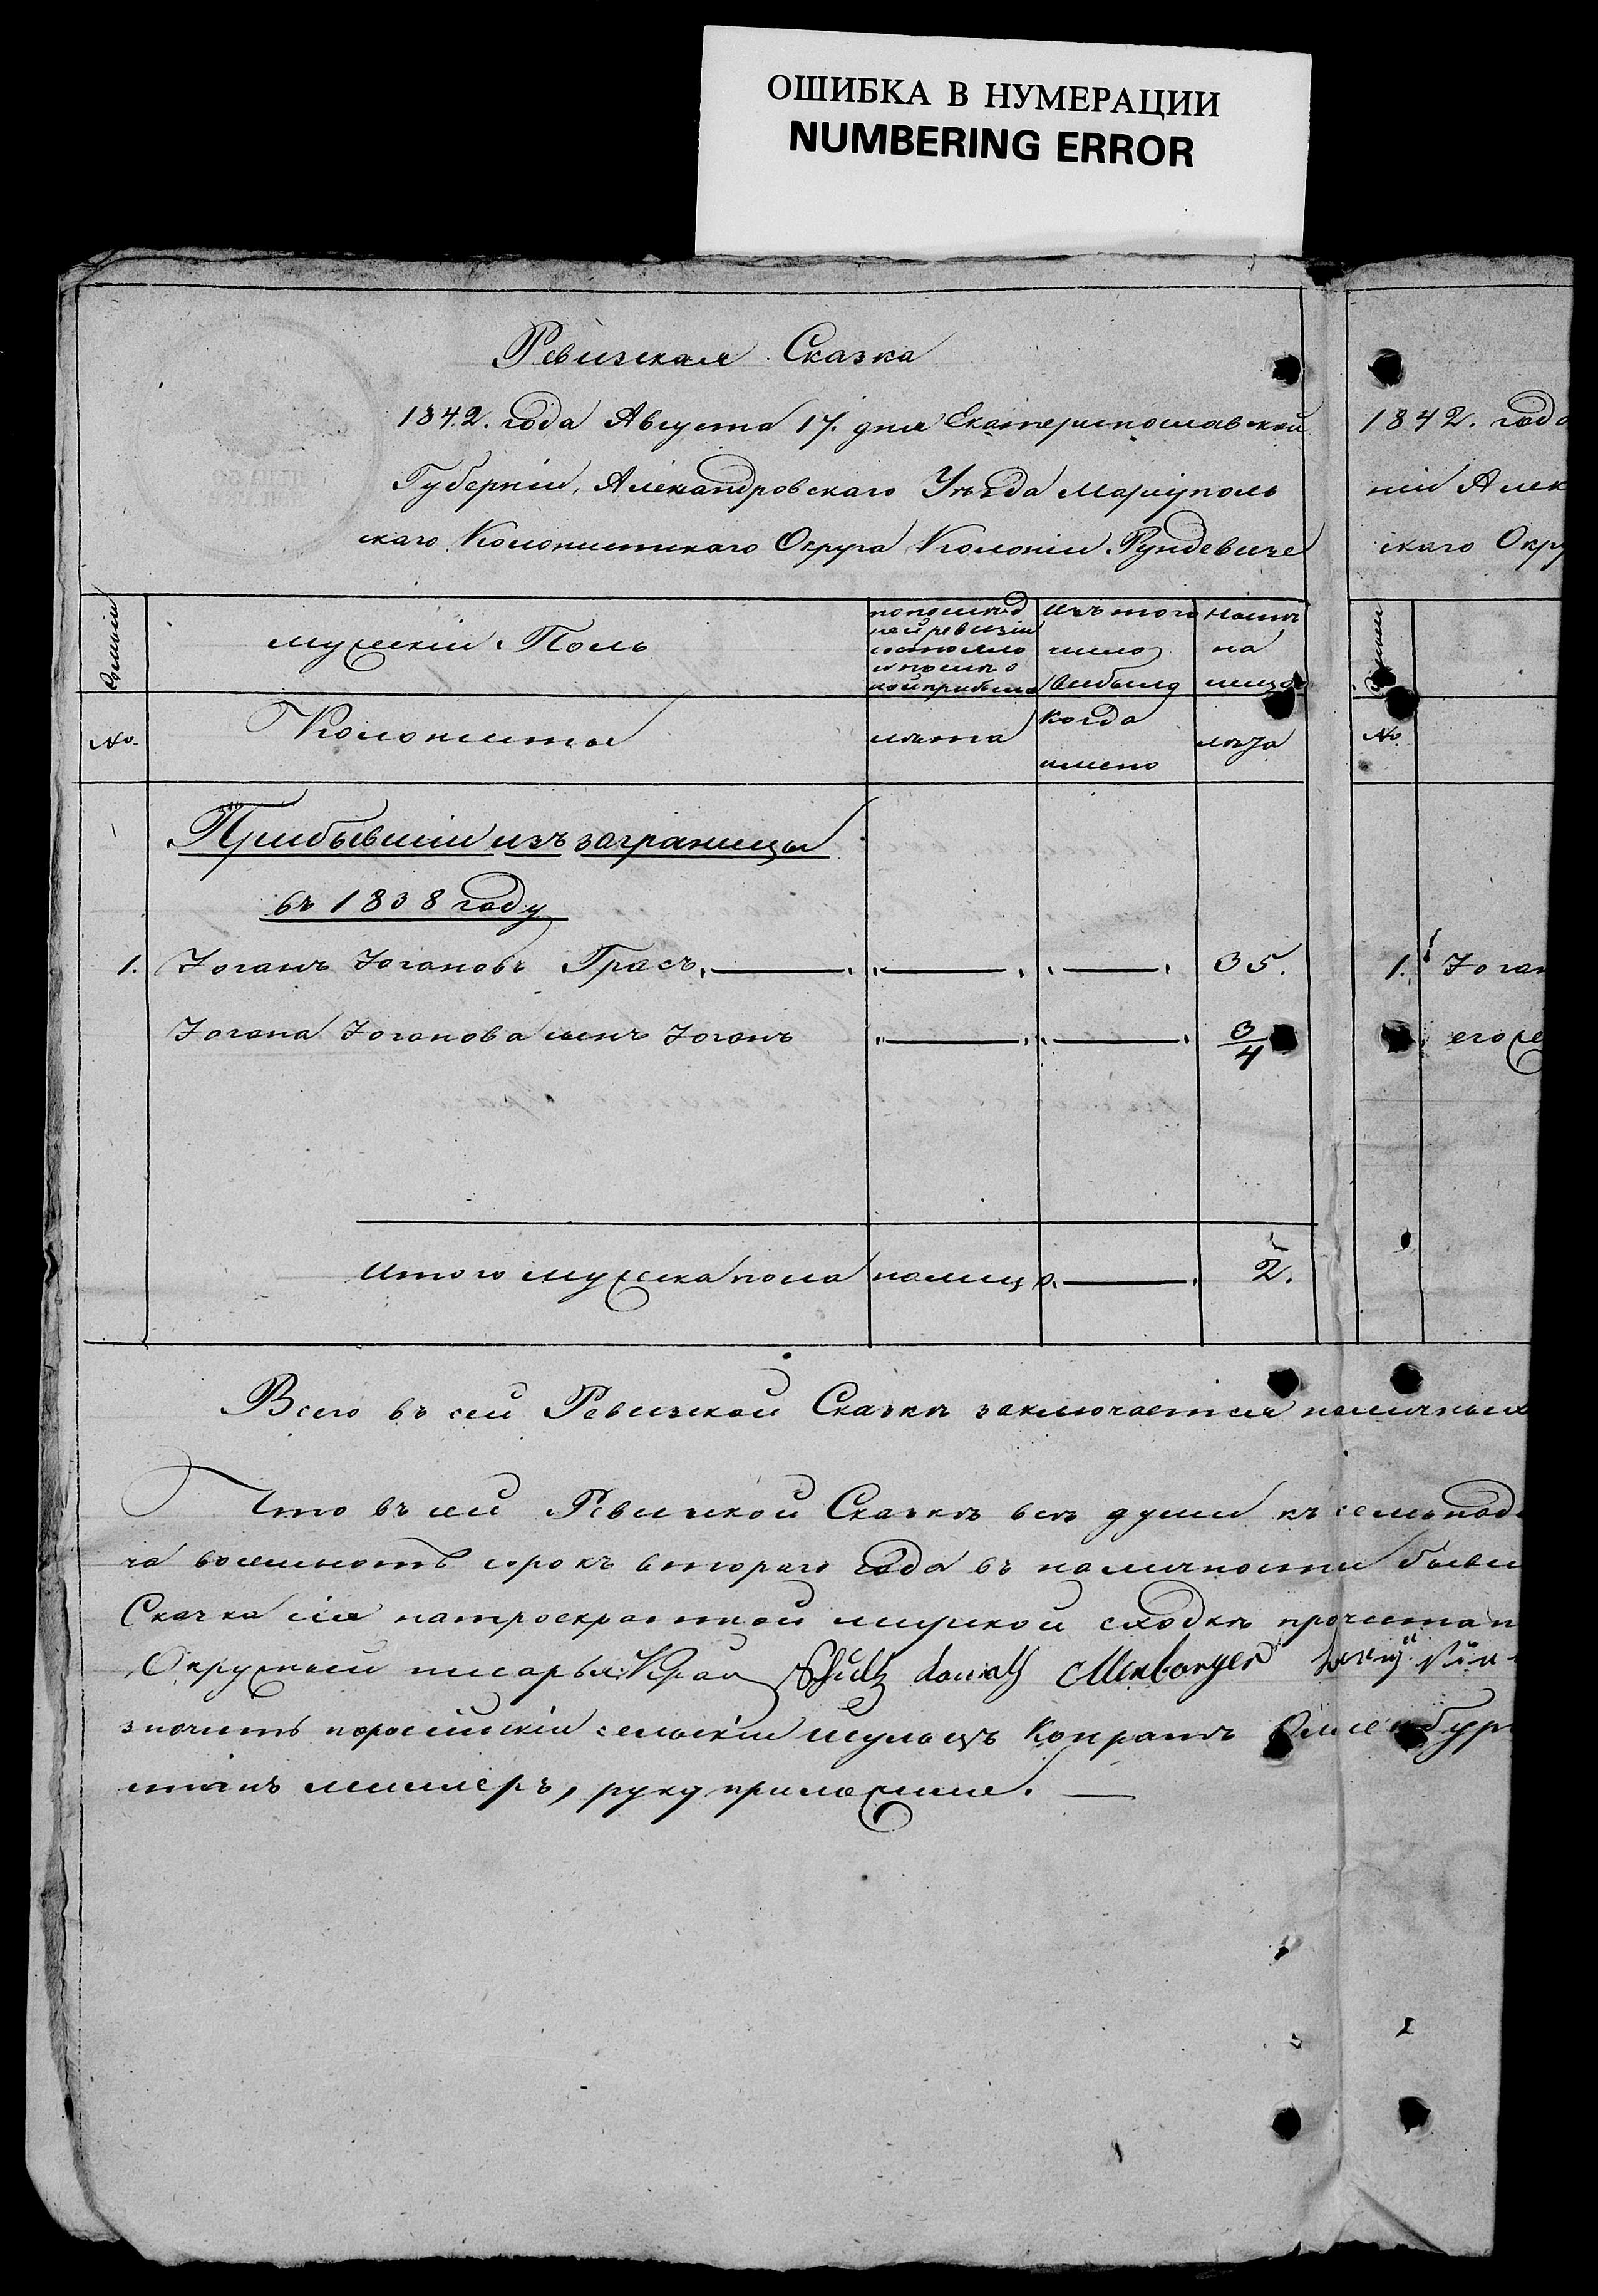 ОШИБКА В НУМЕРАЦИИ
NUMBERING ERROR
Ревизская Сказка
1842. года Августа 17. дня Екатеринославской
Губерніи, Александровскаго Уѣзда Маріуполь
скаго Колонистскаго Округа Колоніи Рундевизе
1842. года
ніи Алек
скаго Окру
Фамиліи
Мужескій Полъ
по послѣд
ней ревизіи
состояло
и послѣ о
ной прибыло
Изъ того
число
выбыло
Нынѣ
на
лицо
№.
Колонисты
лѣта
Когда
имено
лѣта
№
Прибывшіи изъ заграницы
въ 1838 году
1. Јоганъ Јогановъ Грасъ. 35.
1. Јоган
Јогана Јоганова сынъ Јоганъ 3/4
его же
Итого мужеска пола налицо. 2.
Всего въ сей Ревизской Сказкѣ заключается наличныхъ
Что въ сей Ревизской Сказкѣ всѣ души къ
ча восемьсотъ сорокъ втораго года въ наличности бывш
Сказка сія на троекратной мирской сходкѣ прочитан
Окружный писарь Schultz
значитъ пороссійскій сельскій шульцъ Конратъ
миллеръ, руку приложили.